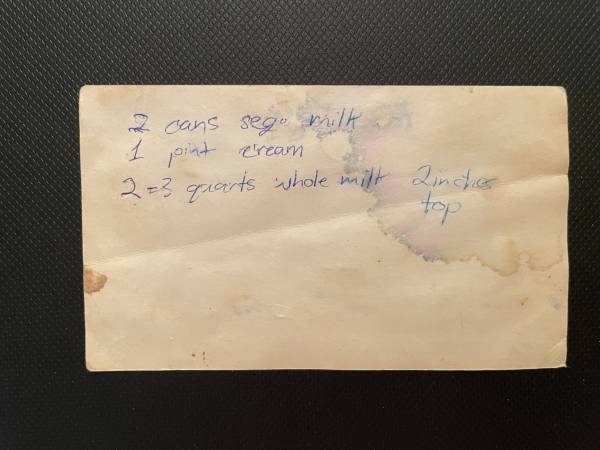 2 cans sego milk
1 point cream
2-3 quarts whole milk 2 inches
top